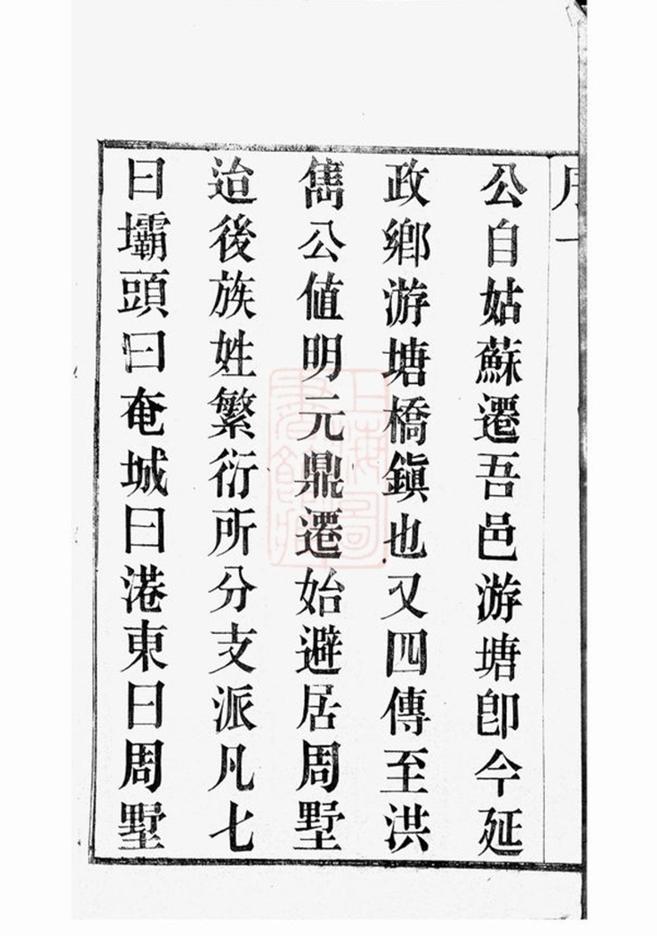 公自姑蘇遷吾邑游塘卽今延
政鄉游塘橋鎭也又四傳至洪
雋公値明元鼎遷始避居周墅
迨後族姓繁衍所分支派凡七
曰壩頭曰奄城曰港東曰周墅
上海圖書館藏